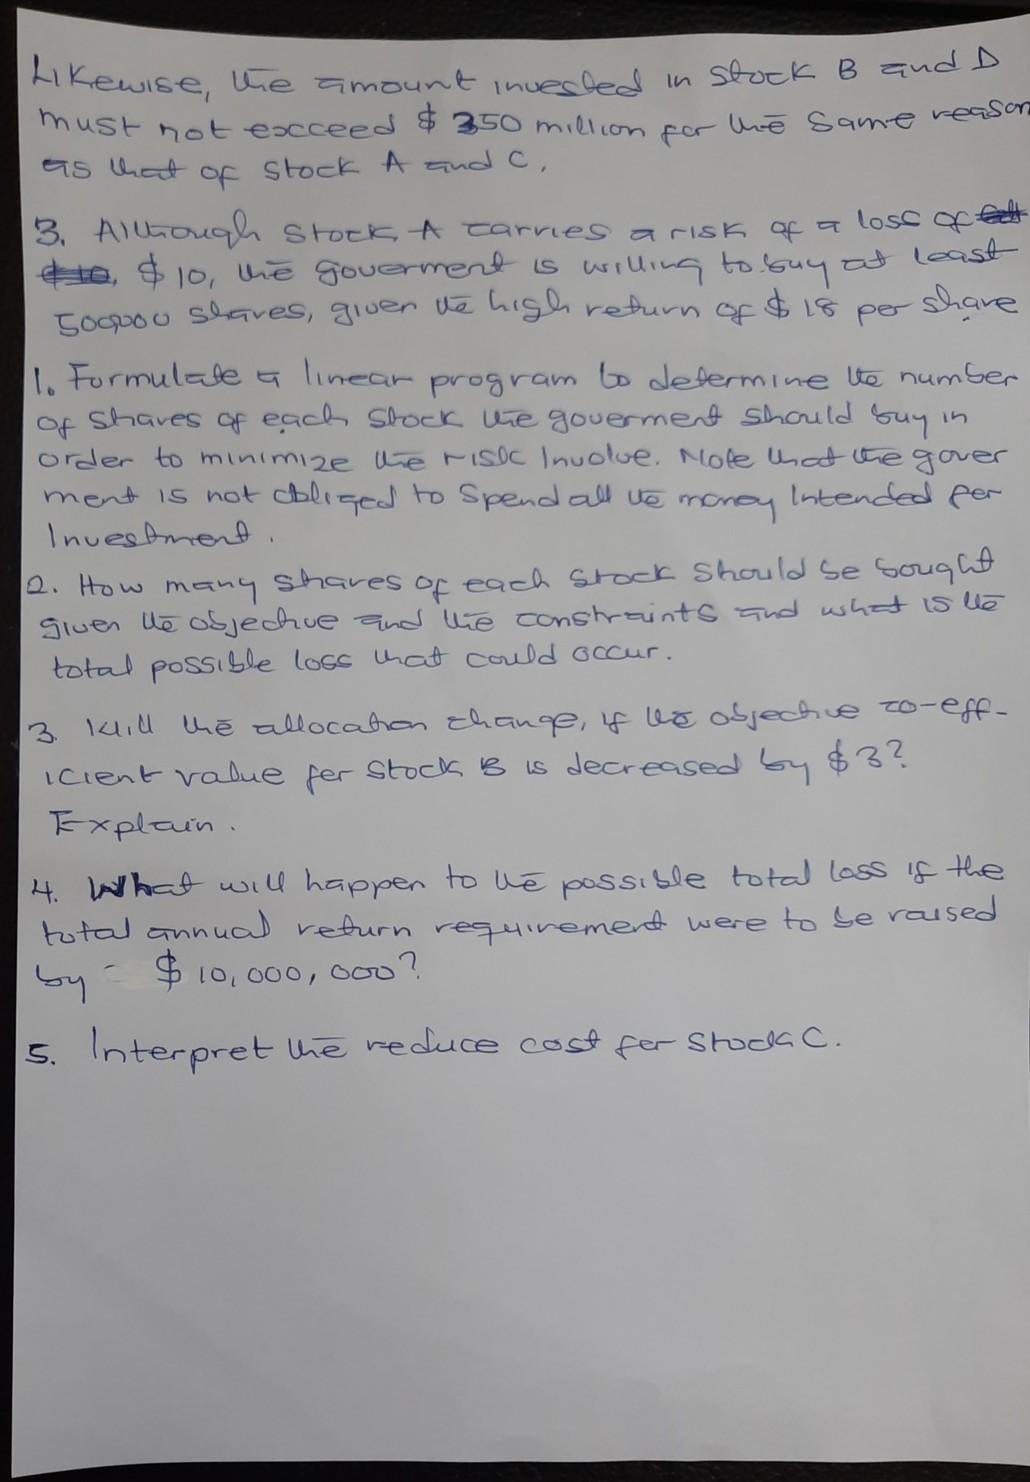 Likewise, the amount invested in stock B and D
must not exceed $ 350 million for the same reason
as that of stock A and C.
3. Although stock A carries a risk of a loss of
$ 10, the goverment is willing to buy at least
500,000 shares, given the high return of $ 18 per share
1. Formulate a linear program to determine the number
of shares of each stock the goverment should buy in
order to minimize the risk Involve. Note that the gover
ment is not obliged to spend all the money Intended for
Investment.
2. How many shares of each stock should be bought
given the objective and the constraints and what is the
total possible loss that could occur.
3. Will the allocation change, if the objective co-eff-
icient value for stock B is decreased by $3?
Explain.
4. What will happen to the possible total loss if the
total annual return requirement were to be raised
by $ 10,000,000?
5. Interpret the reduce cost for stock C.